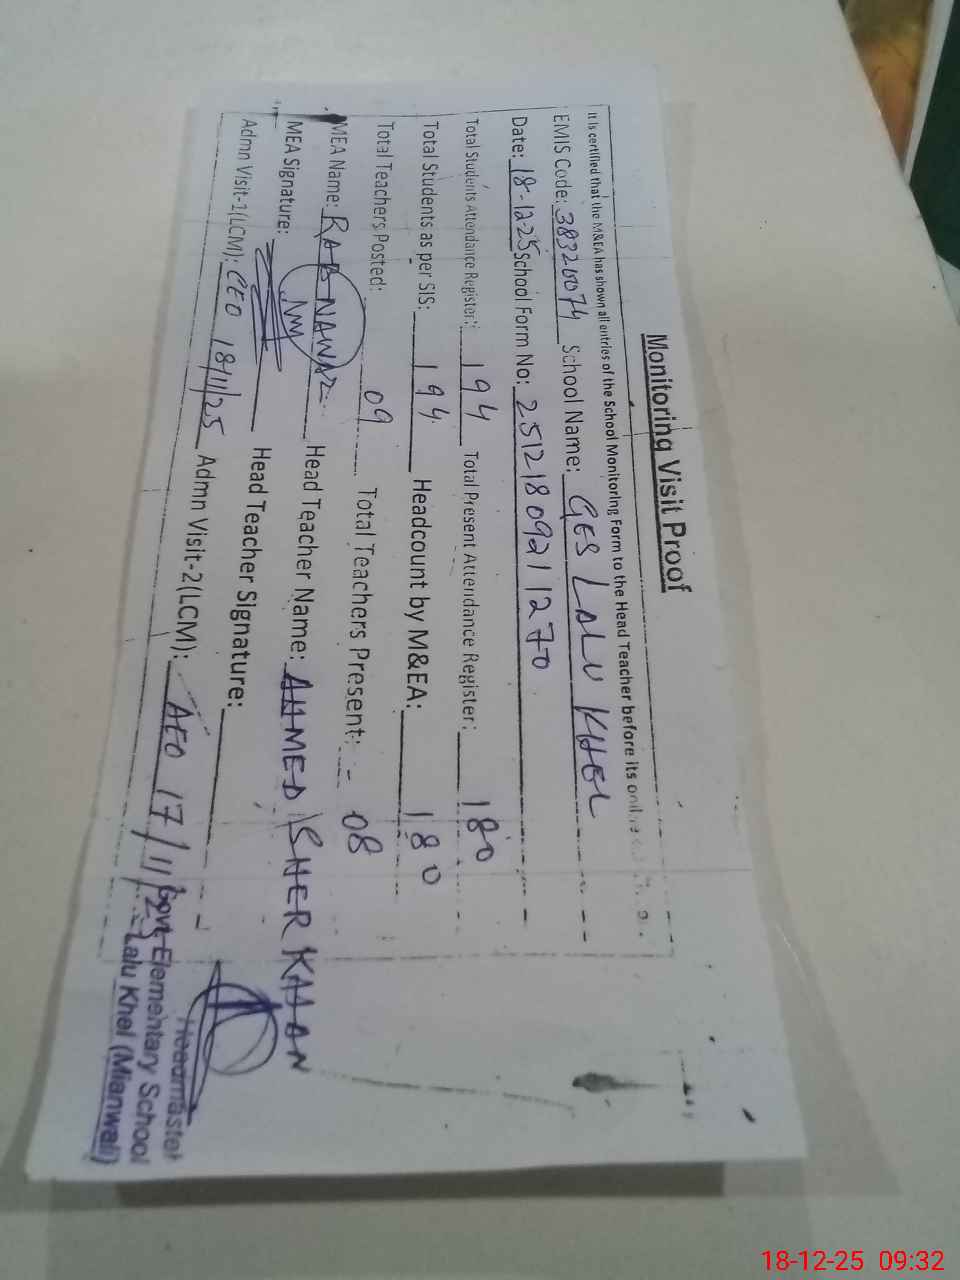 Monitoring Visit Proof
It is certified that the M&EA has shown all entries of the School Monitoring Form to the Head Teacher before its
EMIS Code: 38320074 School Name: GES LALU KHEL
Date: 18-12-25 School Form No: 25121809211270
Total Students Attendance Register: 194 Total Present Attendance Register: 180
Total Students as per SIS: 194 Headcount by M&EA: 180
Total Teachers Posted: 09 Total Teachers Present: 08
MEA Name: RAB NAWAZ Head Teacher Name: AHMED SHER KHAN
MEA Signature: Head Teacher Signature:
Admn Visit-1(LCM): CEO 18/11/25 Admn Visit-2(LCM): AEO 17/11/25
Headmaster
Govt. Elementary School
Lalu Khel (Mianwali)
18-12-25 09:32